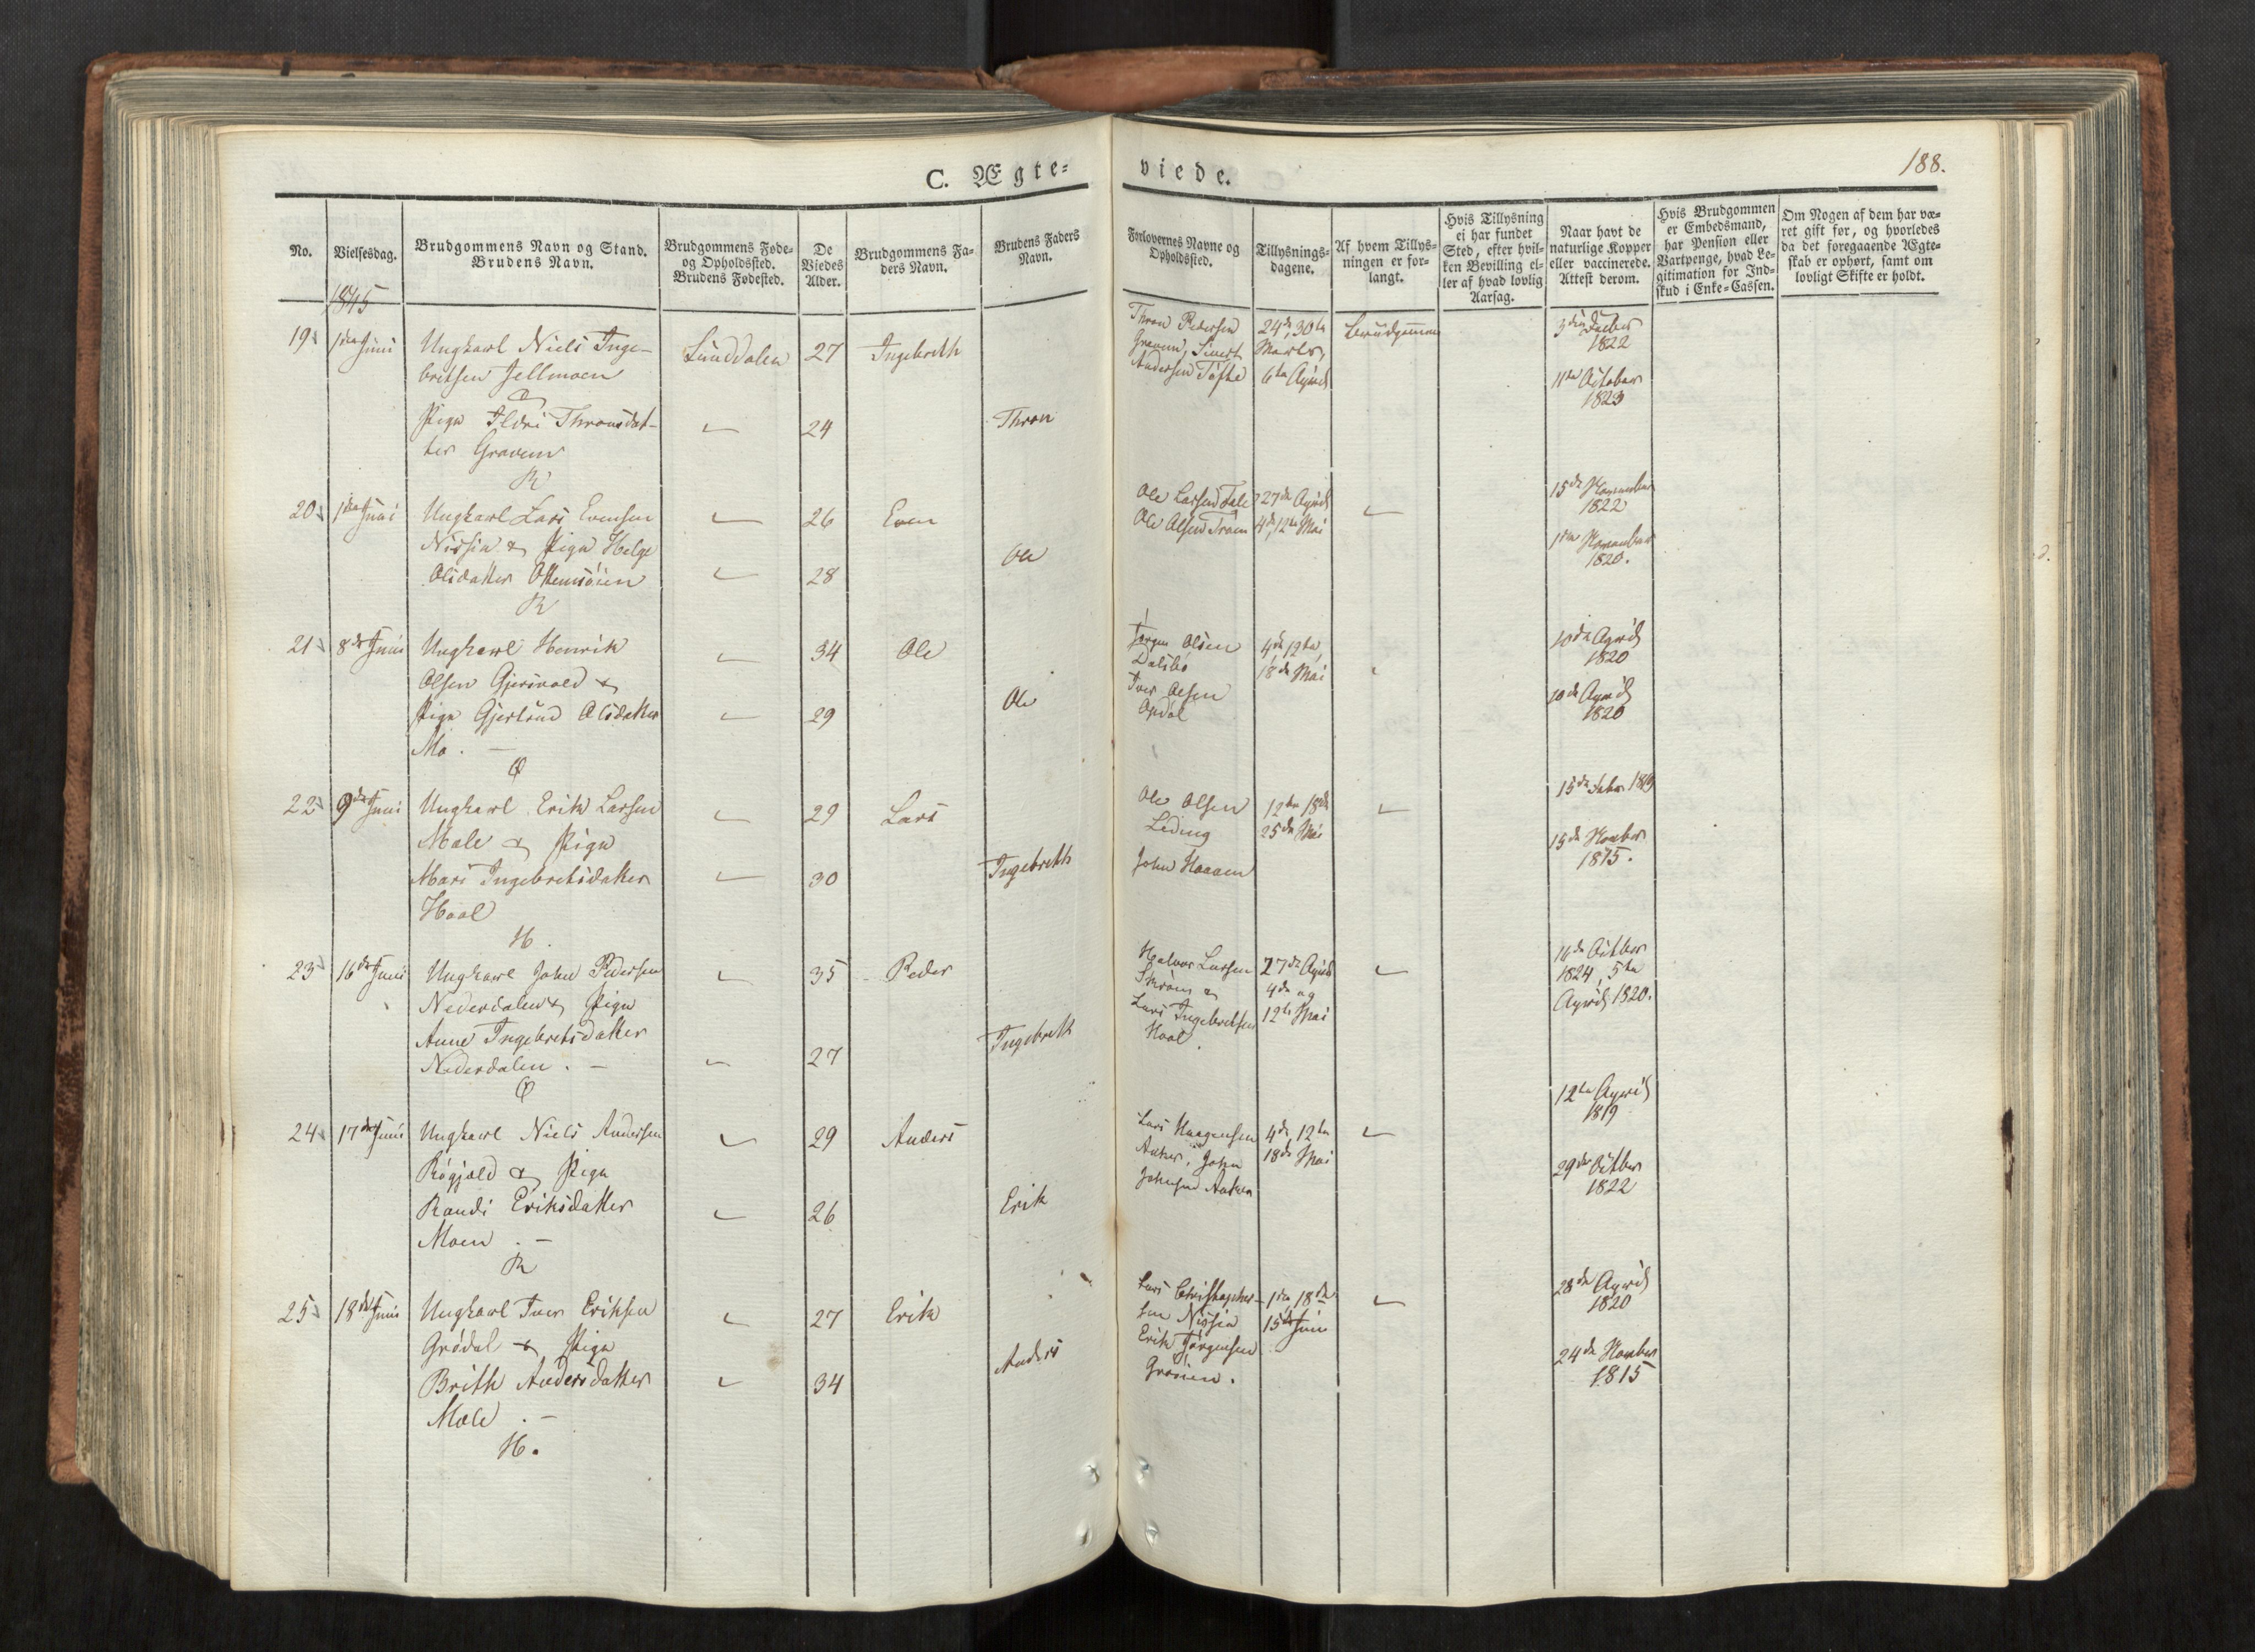 C. Ægte-
viede.
188.
No.
Vielsesdag.
Brudgommens Navn og Stand.
Brudens Navn.
Brudgommens Føde-
og Opholdssted.
Brudens Fødested.
De
Viedes
Alder.
Brudgommens Fa-
ders Navn.
Brudens Faders
Navn.
Forlovernes Navne og
Opholdssted.
Tillysnings-
dagene.
Af hvem Tillys-
ningen er for-
langt.
Hvis Tillysning
ei har fundet
Sted, efter hvil-
ken Bevilling el-
ler af hvad lovlig
Aarsag.
Naar havt de
naturlige Kopper
eller vaccinerede.
Attest derom.
Hvis Brudgommen
er Embedsmand,
har Pension eller
Vartpenge, hvad Le-
gitimation for Ind-
skud i Enke-Cassen.
Om Nogen af dem har væ-
ret gift før, og hvorledes
da det foregaaende Ægte-
skab er ophørt, samt om
lovligt Skifte er holdt.
1845
19 1ste Juni Ungkarl Niels Inge- Sunddalen 27 Ingebreth
britsen Jellmoen
&
Pige Ildri Thronsdat- 24 Thron
ter Gravem
R
Thron Pedersen 24de, 30te Brudgommen
Gravem, Sivert Marts,
Andersen Tofte 6te April
1822
11te October
1823
20 1ste Juni Ungkarl Lars Evensen 26 Even
Nissia & Pige Helge Ole
Olsdatter Ottemsöien 28
R
Ole Larsen 27de April
Ole Olsen 4de, 12te Mai
15de November
1822
November
1820.
21 8de Juni Ungkarl Henrik 34 Ole
Olsen Gjersvold &
Pige Gjertrud Olsdatter 29 Ole
Mo. -
Q
Jørgen Olsen 4de, 12te,
Dalsbø 18de Mai
Iver Olsen
Opdøl
10de April
1820
10de April
1820
22 9de Juni Ungkarl Erik Larsen 29 Lars
Mæle & Pige
Mari Ingebretsdatter 30 Ingebreth
Hoel
H.
Ole Olsen 12te, 18de
Leding 25de Mai
John Haaven
15de 1819
15de Novber
1815.
23 16de Juni Ungkarl John Pedersen 35 Peder
Nederdalen & Pige
Anne Ingebretsdatter 27 Ingebreth
Nederdalen. -
Q
Halvor Larsen 27de April
Skrøm & 4de og
Lars Ingebretsen 12te Mai
Hoel.
16de Octber
1824, 5te
April 1820.
24 17de Juni Ungkarl Niels Andersen 29 Anders
& Pige
Randi Eriksdatter 26 Erik
Moen. -
R
Lars Haagensen 4de, 12te
John 18de Mai
Johnsen
12te April
1819
29de Octber
1822
25 18de Juni Ungkarl Iver Eriksen 27 Erik
Grødal & Pige
Brith Andersdatter 34 Anders
Mæle. -
H.
Lars Christopher- 1ste, 18de
sen Nissia 15de Juni
Erik Jørgensen
28de April
1820
24de Novber
1815